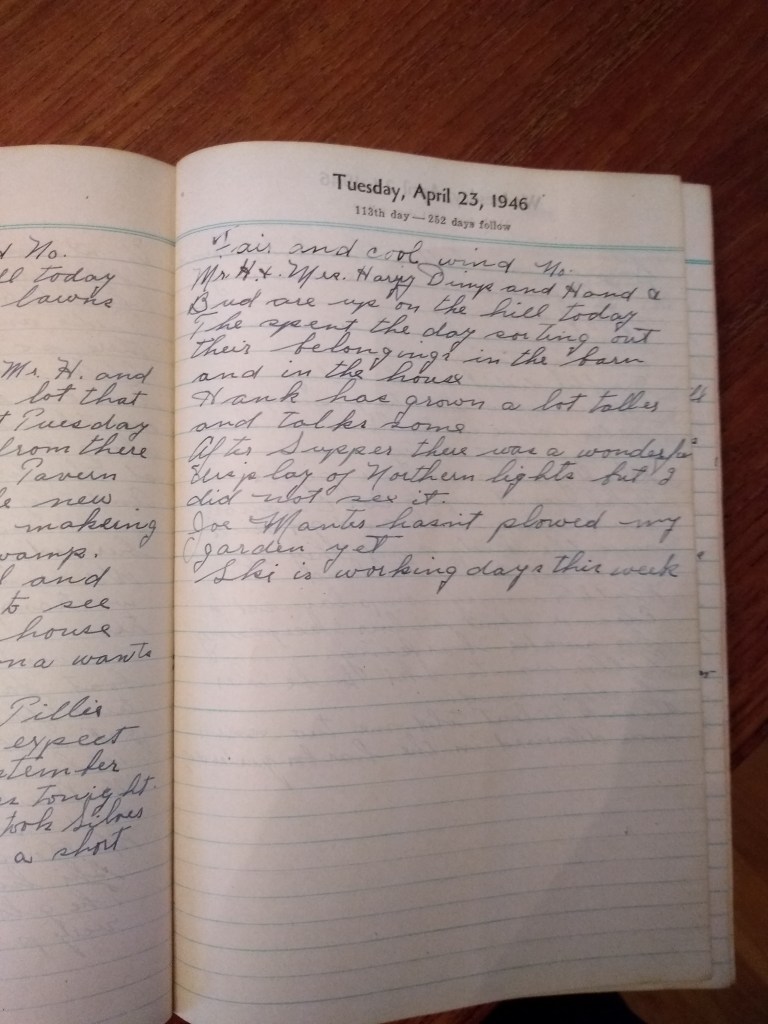 d No.
ll today
lawns
Mr. H. and
lot that
t Tuesday
from there
Tavern
e new
makeing
wamp.
l and
to see
house
na wants
Pillis
expect
stember
es tonight.
took Silver
a short
Tuesday, April 23, 1946
113th day — 252 days follow
Fair and cool wind No.
Mr. H. & Mrs. Harry Dimp and Hand &
Bud are up on the hill today
The spent the day sorting out
their belongings in the barn
and in the house
Hank has grown a lot taller
and talks some
After Supper there was a wonderful
display of Northern lights but I
did not see it.
Joe Mantis hasnt plowed my
garden yet
Ski is working days this week